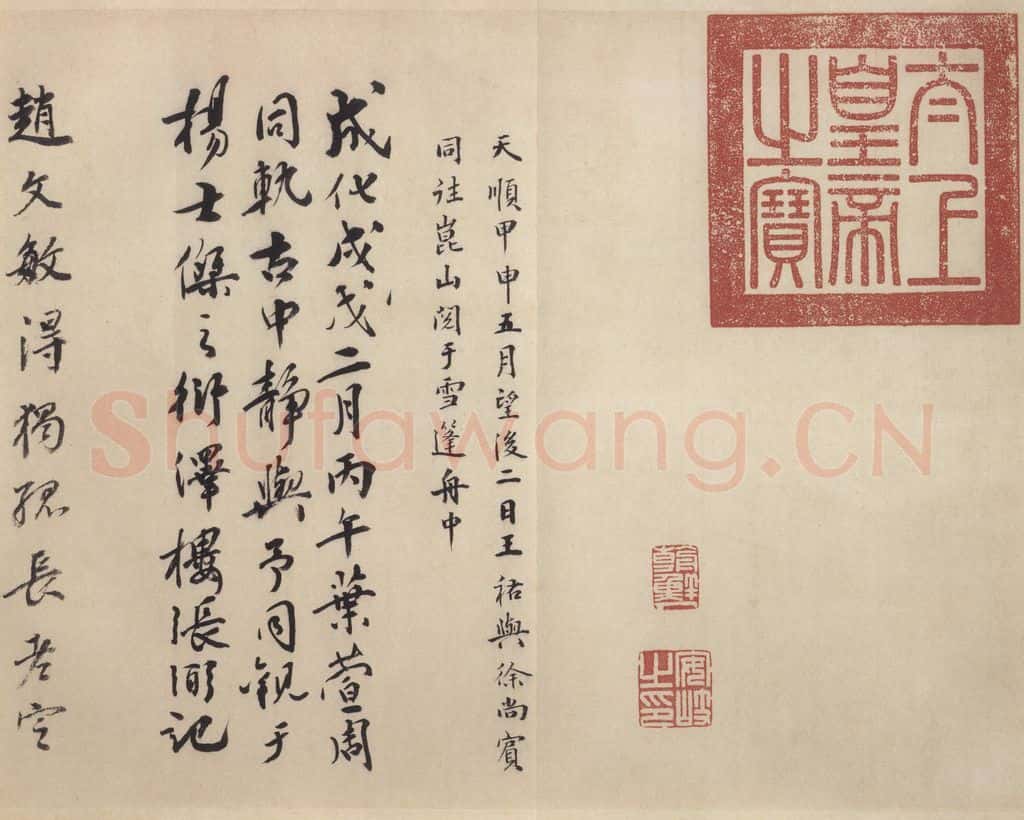 太上
皇帝
之寶
朝鮮
安岐
之印
天順甲申五月望後二日王祐與徐尚賓
同往崑山閱于雪篷舟中
成化戊戌二月丙午葉萱周
同軌古中靜與予同觀于
楊士傑之衍澤樓張弼記
趙文敏得獨孤長老定
Shufawang.CN